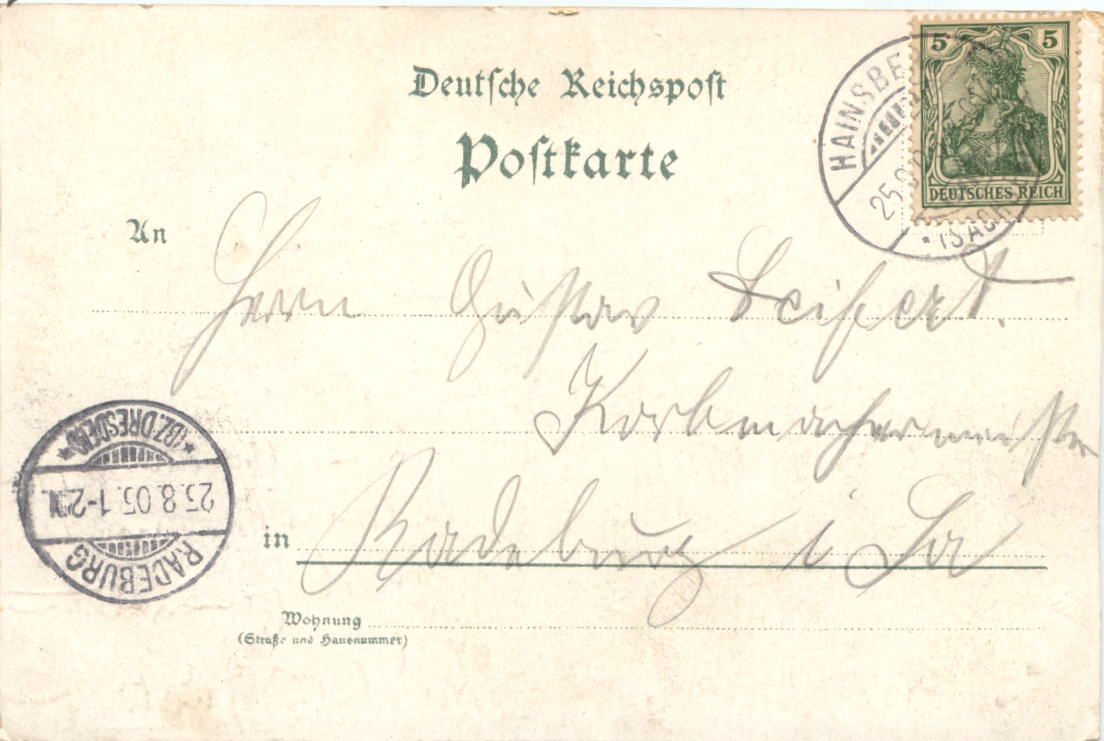 Deutsche Reichspost
Postkarte
5 5
DEUTSCHES REICH
HAINSBE
25.8.0
* (SACH
An
Herrn Gustav Seifert.
Korbmachermeister
in Radeburg i Sa
Wohnung
(Straße und Hausnummer)
RADEBURG
25.8.05.1-2N.
*(BZ.DRESDEN)*